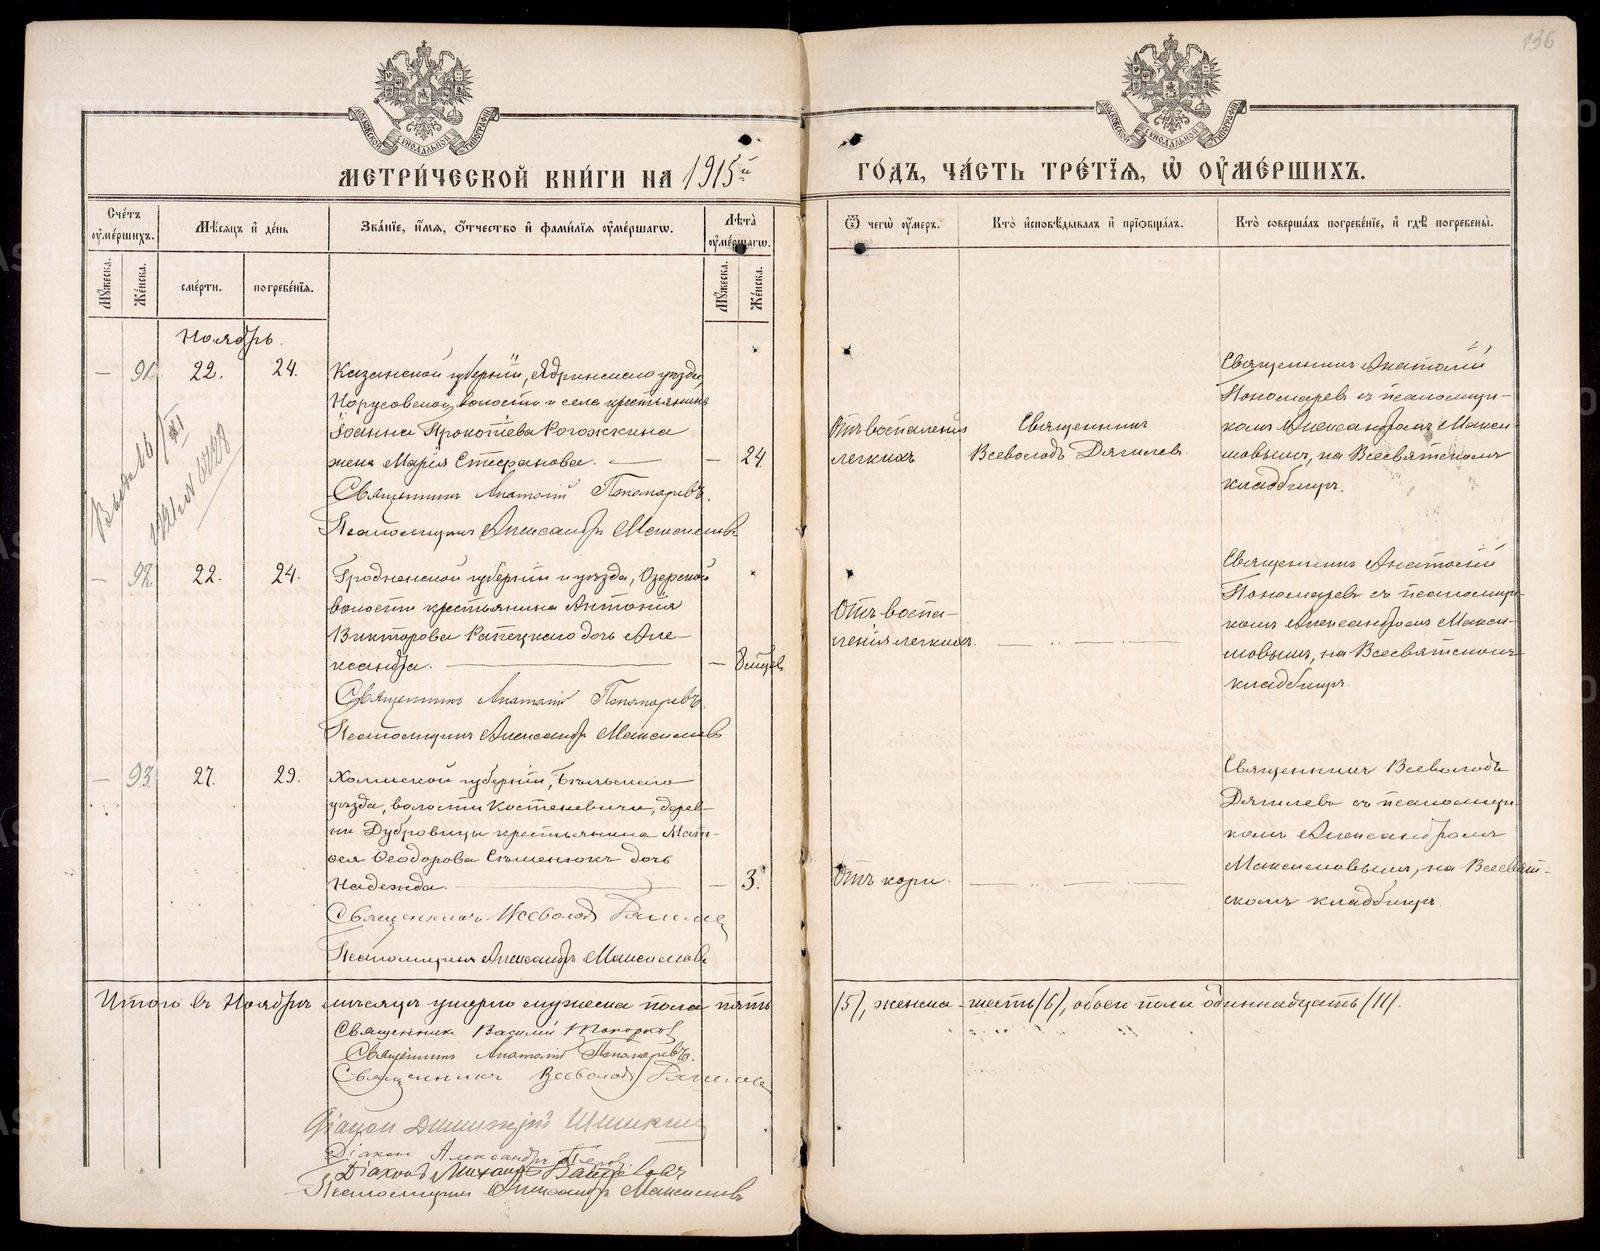 136
МЕТРИ́ЧЕСКОЙ КНИ́ГИ НА 1915й
ГО́ДЪ, ЧА́СТЬ ТРЕ́ТЇѦ, Ѡ҆ ОУ҆МЕ́РШИХЪ.
Сче́тъ оу҆ме́ршихъ.
Мѣ́сѧцъ и҆ де́нь
Зва́нїе, и҆́мѧ, ѻ҆́тчество и҆ фами́лїѧ оу҆ме́ршагѡ.
Лѣ́та оу҆ме́ршагѡ.
Ѿ чегѡ̀ оу҆́меръ.
Кто̀ и҆сповѣ́дывалъ и҆ прїѻбща́лъ.
Кто̀ соверша́лъ погребе́нїе, и҆ гдѣ̀ погребены̀.
Мꙋ́жеска.
Же́нска.
сме́рти.
погребе́нїѧ.
Мꙋ́жеска.
Же́нска.
Ноябрь.
— 91. 22. 24.
Казанской губернiи, Ядринскаго уѣзда,
Норусовской волости и села крестьянина
Iоанна Прокопiева Рогожкина
жена Марiя Стефанова. — — 24
Священникъ Анатолiй Пономаревъ.
Псаломщикъ Александръ Максимовъ
Отъ воспаленiя
легкихъ
Священникъ
Всеволодъ Дягилевъ.
Священникъ Анатолiй
Пономаревъ съ псаломщи-
комъ Александромъ Макси-
мовымъ, на Всесвятскомъ
кладбищѣ.
— 92. 22. 24.
Гродненской губернiи и уѣзда, Озерской
волости крестьянина Антонiя
Викторова Рапецкаго дочь Але-
ксандра. — — 8 мѣсяц.
Священникъ Анатолiй Пономаревъ.
Псаломщикъ Александръ Максимовъ
Отъ воспа-
ленiя легкихъ.
— „ —
Священникъ Анатолiй
Пономаревъ съ псаломщи-
комъ Александромъ Макси-
мовымъ, на Всесвятскомъ
кладбищѣ.
— 93. 27. 29.
Холмской губернiи, Бѣльскаго
уѣзда, волости Костеневичи, дерев-
ни Дубровицы крестьянина Мат-
ѳея Ѳеодорова Сѣменюкъ дочь
Надежда. — — 3.
Священникъ Всеволодъ Дягилевъ
Псаломщикъ Александръ Максимовъ
Отъ кори.
— „ —
Священникъ Всеволодъ
Дягилевъ съ псаломщи-
комъ Александромъ
Максимовымъ, на Всесвят-
скомъ кладбищѣ.
Итого въ Ноябрѣ мѣсяцѣ умерло мужеска пола пять
(5), женска – шесть (6), обоего пола одиннадцать (11).
Священникъ Василiй
Священникъ Анатолiй Пономаревъ.
Священникъ Всеволодъ Дягилевъ
Дiаконъ Димитрiй Шишкинъ
Дiаконъ Александръ
Дiаконъ Михаилъ
Псаломщикъ Александръ Максимовъ